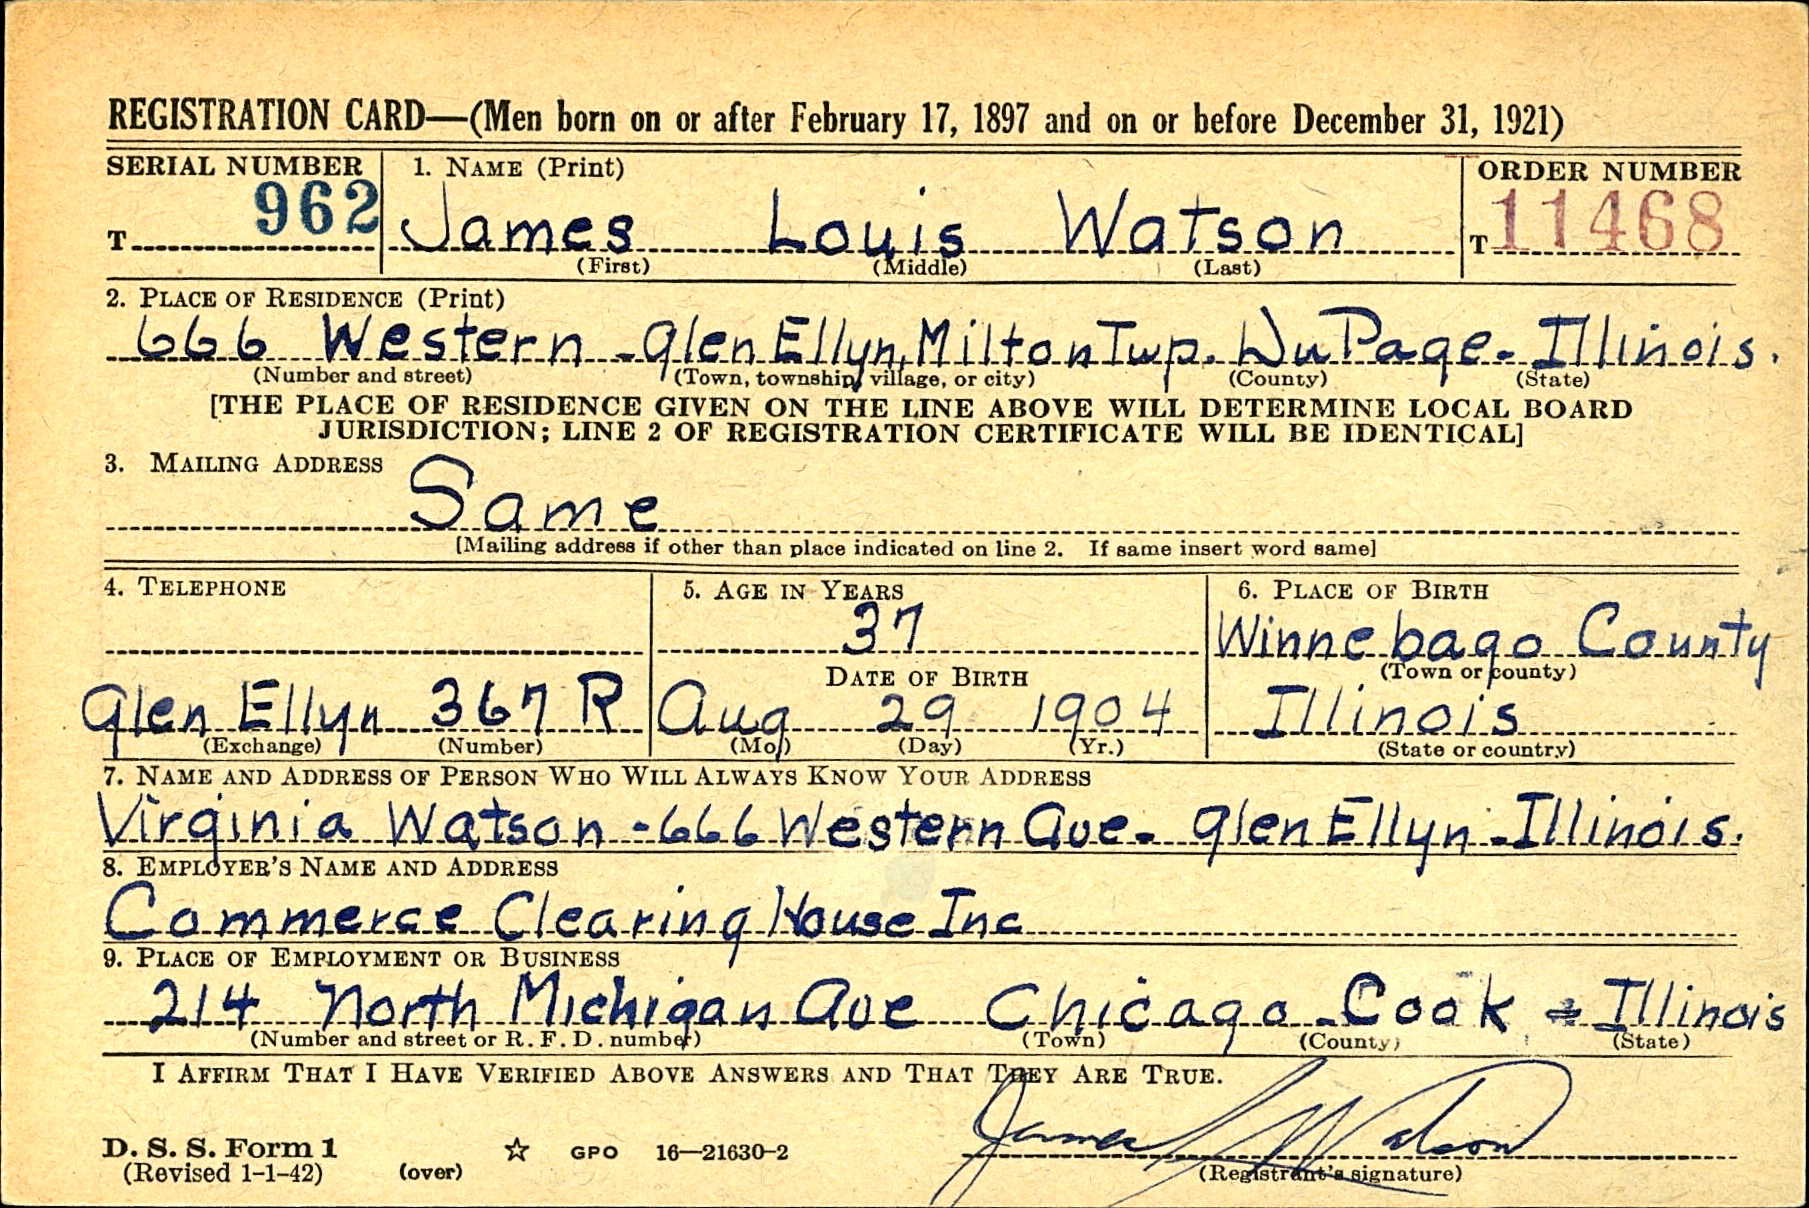 REGISTRATION CARD—(Men born on or after February 17, 1897 and on or before December 31, 1921)
SERIAL NUMBER 1. NAME (Print) ORDER NUMBER
T 962 James Louis Watson T 11468
(First) (Middle) (Last)
2. PLACE OF RESIDENCE (Print)
666 Western - Glen Ellyn, Milton Twp. DuPage - Illinois.
(Number and street) (Town, township, village, or city) (County) (State)
[THE PLACE OF RESIDENCE GIVEN ON THE LINE ABOVE WILL DETERMINE LOCAL BOARD
JURISDICTION; LINE 2 OF REGISTRATION CERTIFICATE WILL BE IDENTICAL]
3. MAILING ADDRESS
Same
[Mailing address if other than place indicated on line 2. If same insert word same]
4. TELEPHONE 5. AGE IN YEARS 6. PLACE OF BIRTH
37 Winnebago County
DATE OF BIRTH (Town or county)
Glen Ellyn 367 R Aug 29 1904 Illinois
(Exchange) (Number) (Mo.) (Day) (Yr.) (State or country)
7. NAME AND ADDRESS OF PERSON WHO WILL ALWAYS KNOW YOUR ADDRESS
Virginia Watson - 666 Western Ave - Glen Ellyn - Illinois.
8. EMPLOYER'S NAME AND ADDRESS
Commerce Clearing House Inc
9. PLACE OF EMPLOYMENT OR BUSINESS
214 North Michigan Ave Chicago - Cook - Illinois
(Number and street or R. F. D. number) (Town) (County) (State)
I AFFIRM THAT I HAVE VERIFIED ABOVE ANSWERS AND THAT THEY ARE TRUE.
James L Watson
D. S. S. Form 1 ☆ GPO 16—21630-2
(Revised 1-1-42) (over) (Registrant's signature)